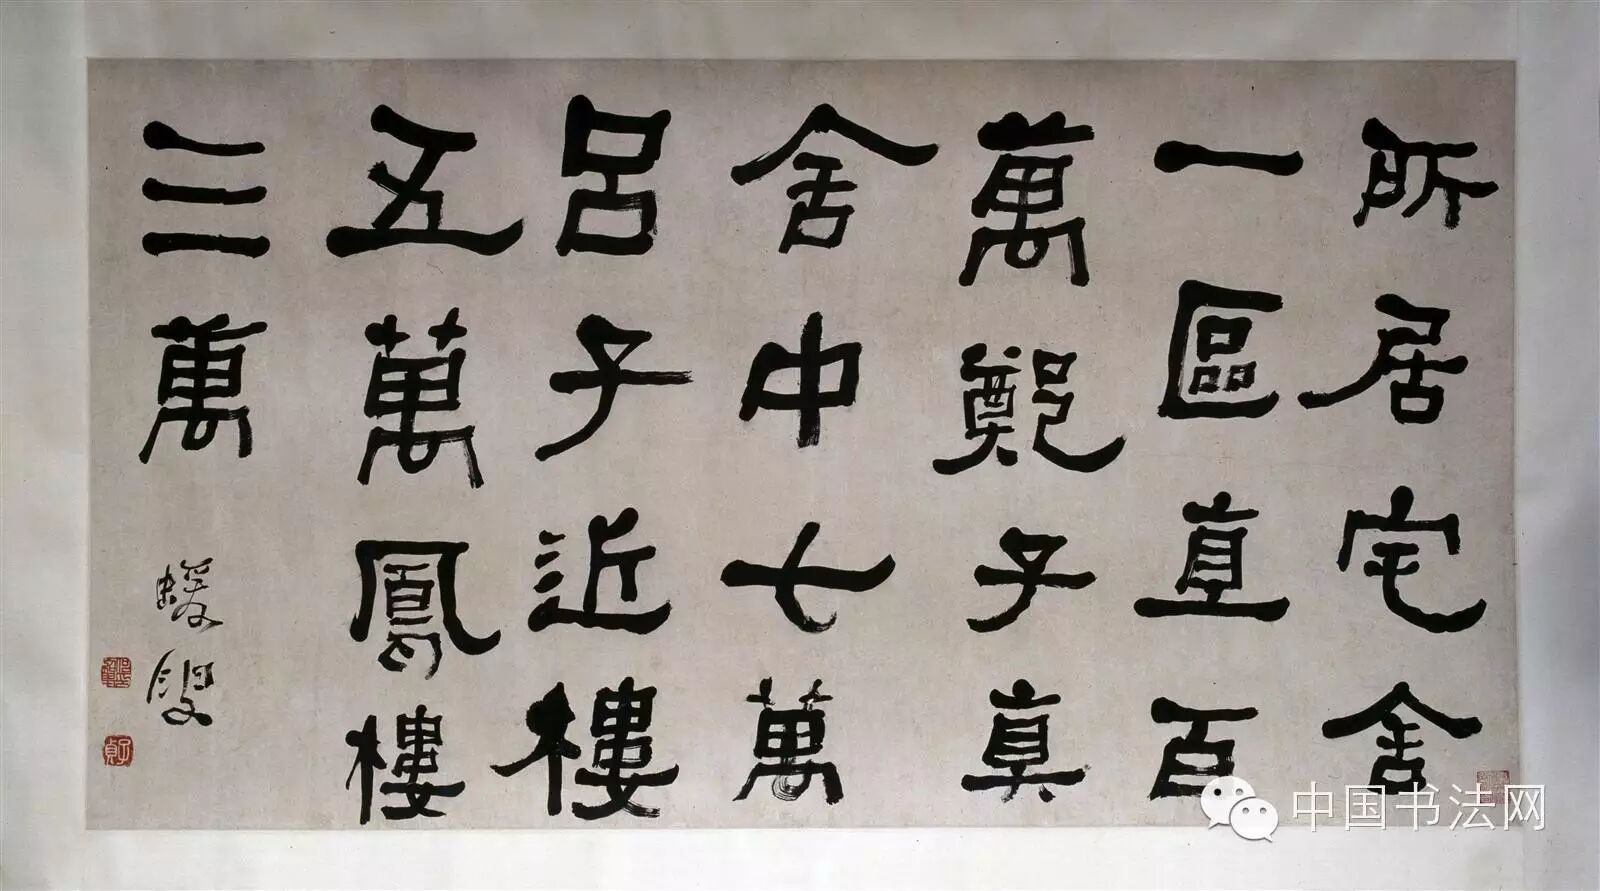 所居宅舍
一區直百
萬鄭子真
舍中七萬
呂子近樓
五萬鳳樓
三萬
蝯叟
子貞
中国书法网